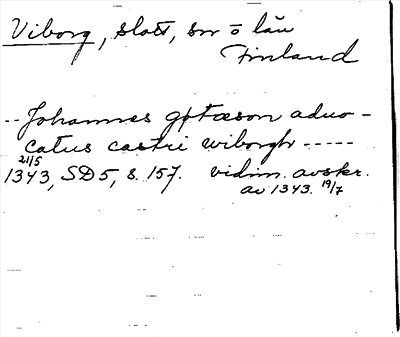 Viborg, slott, sn o län
Finland
-- Johannes gøtæson aduo-
catus castri wiborgh -----
21/5
1343, SD5, s. 157. vidim. avskr.
av 1343. 19/7